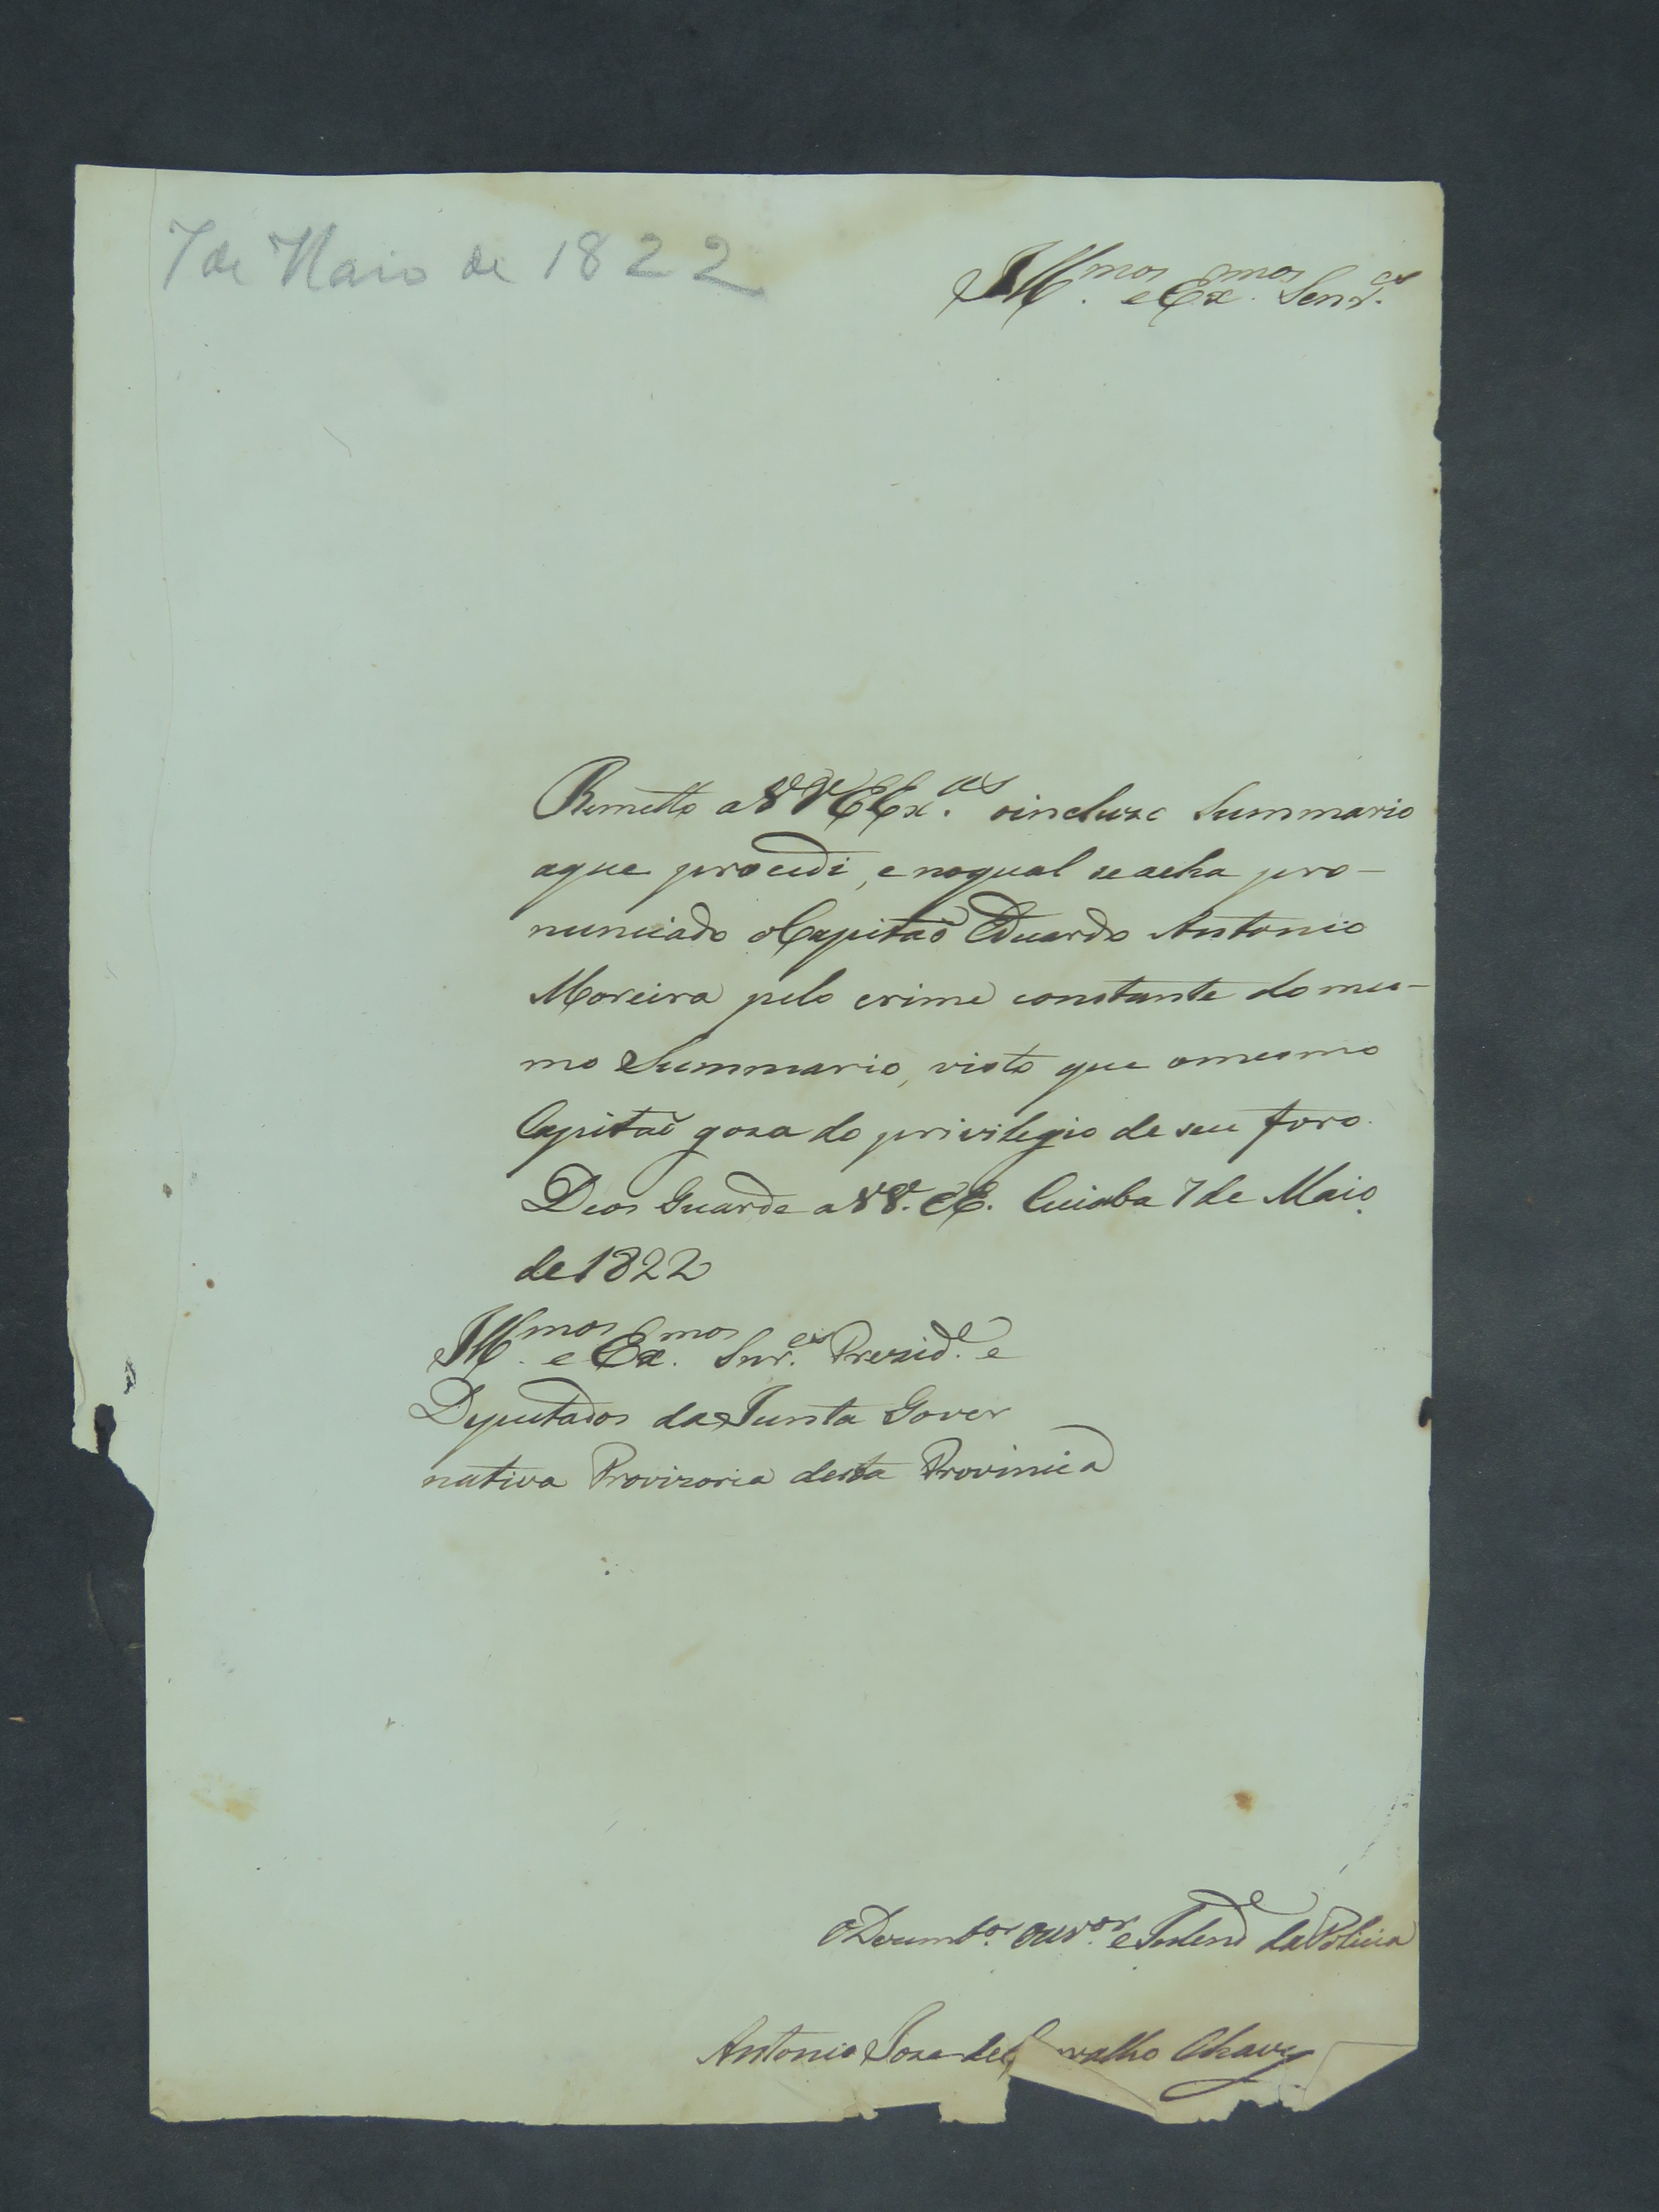 7 de Maio de 1822
Ill.mos e Ex.mos Senr.es
Remetto a VVEEx.as oincluzo Summario
aque procedi, e noqual seacha pro-
nunciado oCapitaõ Eduardo Antonio
Moreira pelo crime constante do mes-
mo Summario, visto que omesmo
Capitaõ goza do privilegio de seu foro.
Deos Guarde a VV.EE. Cuiaba 7 de Maio
de 1822
Ill.mos e Ex.mos Snr.es Prezid.e e
Deputados da Junta Gover
nativa Provizoria desta Provincia
ODezemb.or Ouv.or e Intend.e da Policia
Antonio Joze de Carvalho Chaves